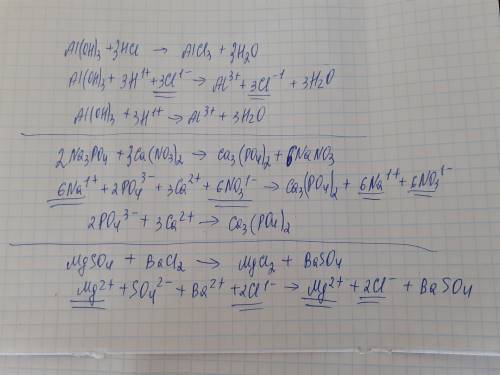 Al(OH)₃ + 3HCl → AlCl₃ + 3H₂O
Al(OH)₃ + 3H¹⁺ + 3Cl¹⁻ → Al³⁺ + 3Cl⁻¹ + 3H₂O
Al(OH)₃ + 3H¹⁺ → Al³⁺ + 3H₂O
2Na₃PO₄ + 3Ca(NO₃)₂ → Ca₃(PO₄)₂ + 6NaNO₃
6Na¹⁺ + 2PO₄³⁻ + 3Ca²⁺ + 6NO₃¹⁻ → Ca₃(PO₄)₂ + 6Na¹⁺ + 6NO₃¹⁻
2PO₄³⁻ + 3Ca²⁺ → Ca₃(PO₄)₂
MgSO₄ + BaCl₂ → MgCl₂ + BaSO₄
Mg²⁺ + SO₄²⁻ + Ba²⁺ + 2Cl¹⁻ → Mg²⁺ + 2Cl⁻ + BaSO₄